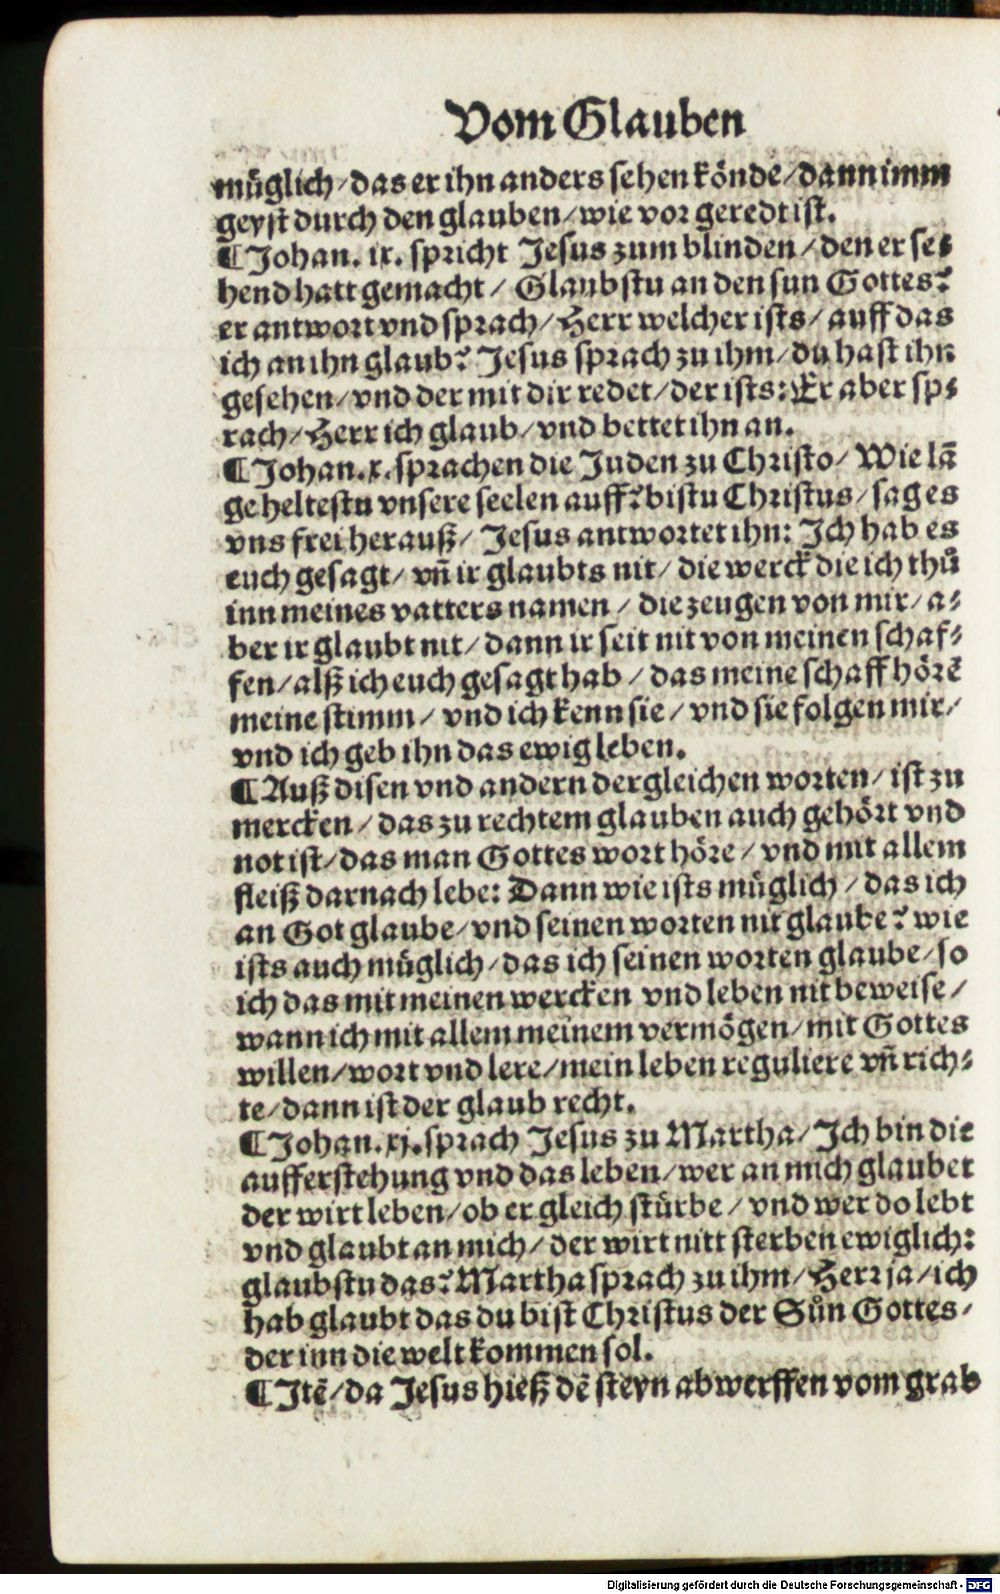 Vom Glauben
müglich / das er ihn anders sehen könde / dann imm
geyst durch den glauben / wie vor geredt ist.
¶ Johan. ix. spricht Jesus zum blinden / den er se⸗
hend hatt gemacht / Glaubstu an den sun Gottes?
er antwort vnd sprach / Herr welcher ists / auff das
ich an ihn glaub? Jesus sprach zu ihm / du hast ihn
gesehen / vnd der mit dir redet / der ists: Er aber sp⸗
rach / Herr ich glaub / vnd bettet ihn an.
¶ Johan. x. sprachen die Juden zu Christo / Wie lā
ge heltestu vnsere seelen auff? bistu Christus / sag es
vns frei herauß / Jesus antwortet ihn: Ich hab es
euch gesagt / vn̄ ir glaubts nit / die werck die ich thů
inn meines vatters namen / die zeugen von mir / a⸗
ber ir glaubt nit / dann ir seit nit von meinen schaf⸗
fen / alß ich euch gesagt hab / das meine schaff hörē
meine stimm / vnd ich kenn sie / vnd sie folgen mir /
vnd ich geb ihn das ewig leben.
¶ Auß disen vnd andern dergleichen worten / ist zu
mercken / das zu rechtem glauben auch gehört vnd
not ist / das man Gottes wort höre / vnd mit allem
fleiß darnach lebe: Dann wie ists müglich / das ich
an Got glaube / vnd seinen worten nit glaube? wie
ists auch müglich / das ich seinen worten glaube / so
ich das mit meinen wercken vnd leben nit beweise /
wann ich mit allem meinem vermögen / mit Gottes
willen / wort vnd lere / mein leben reguliere vn̄ rich⸗
te / dann ist der glaub recht.
¶ Johan. xj. sprach Jesus zu Martha / Ich bin die
aufferstehung vnd das leben / wer an mich glaubet
der wirt leben / ob er gleich stürbe / vnd wer do lebt
vnd glaubt an mich / der wirt nitt sterben ewiglich:
glaubstu das? Martha sprach zu ihm / Herr ja / ich
hab glaubt das du bist Christus der Sůn Gottes /
der inn die welt kommen sol.
¶ Itē / da Jesus hieß dē steyn abwerffen vom grab
Digitalisierung gefördert durch die Deutsche Forschungsgemeinschaft - DFG